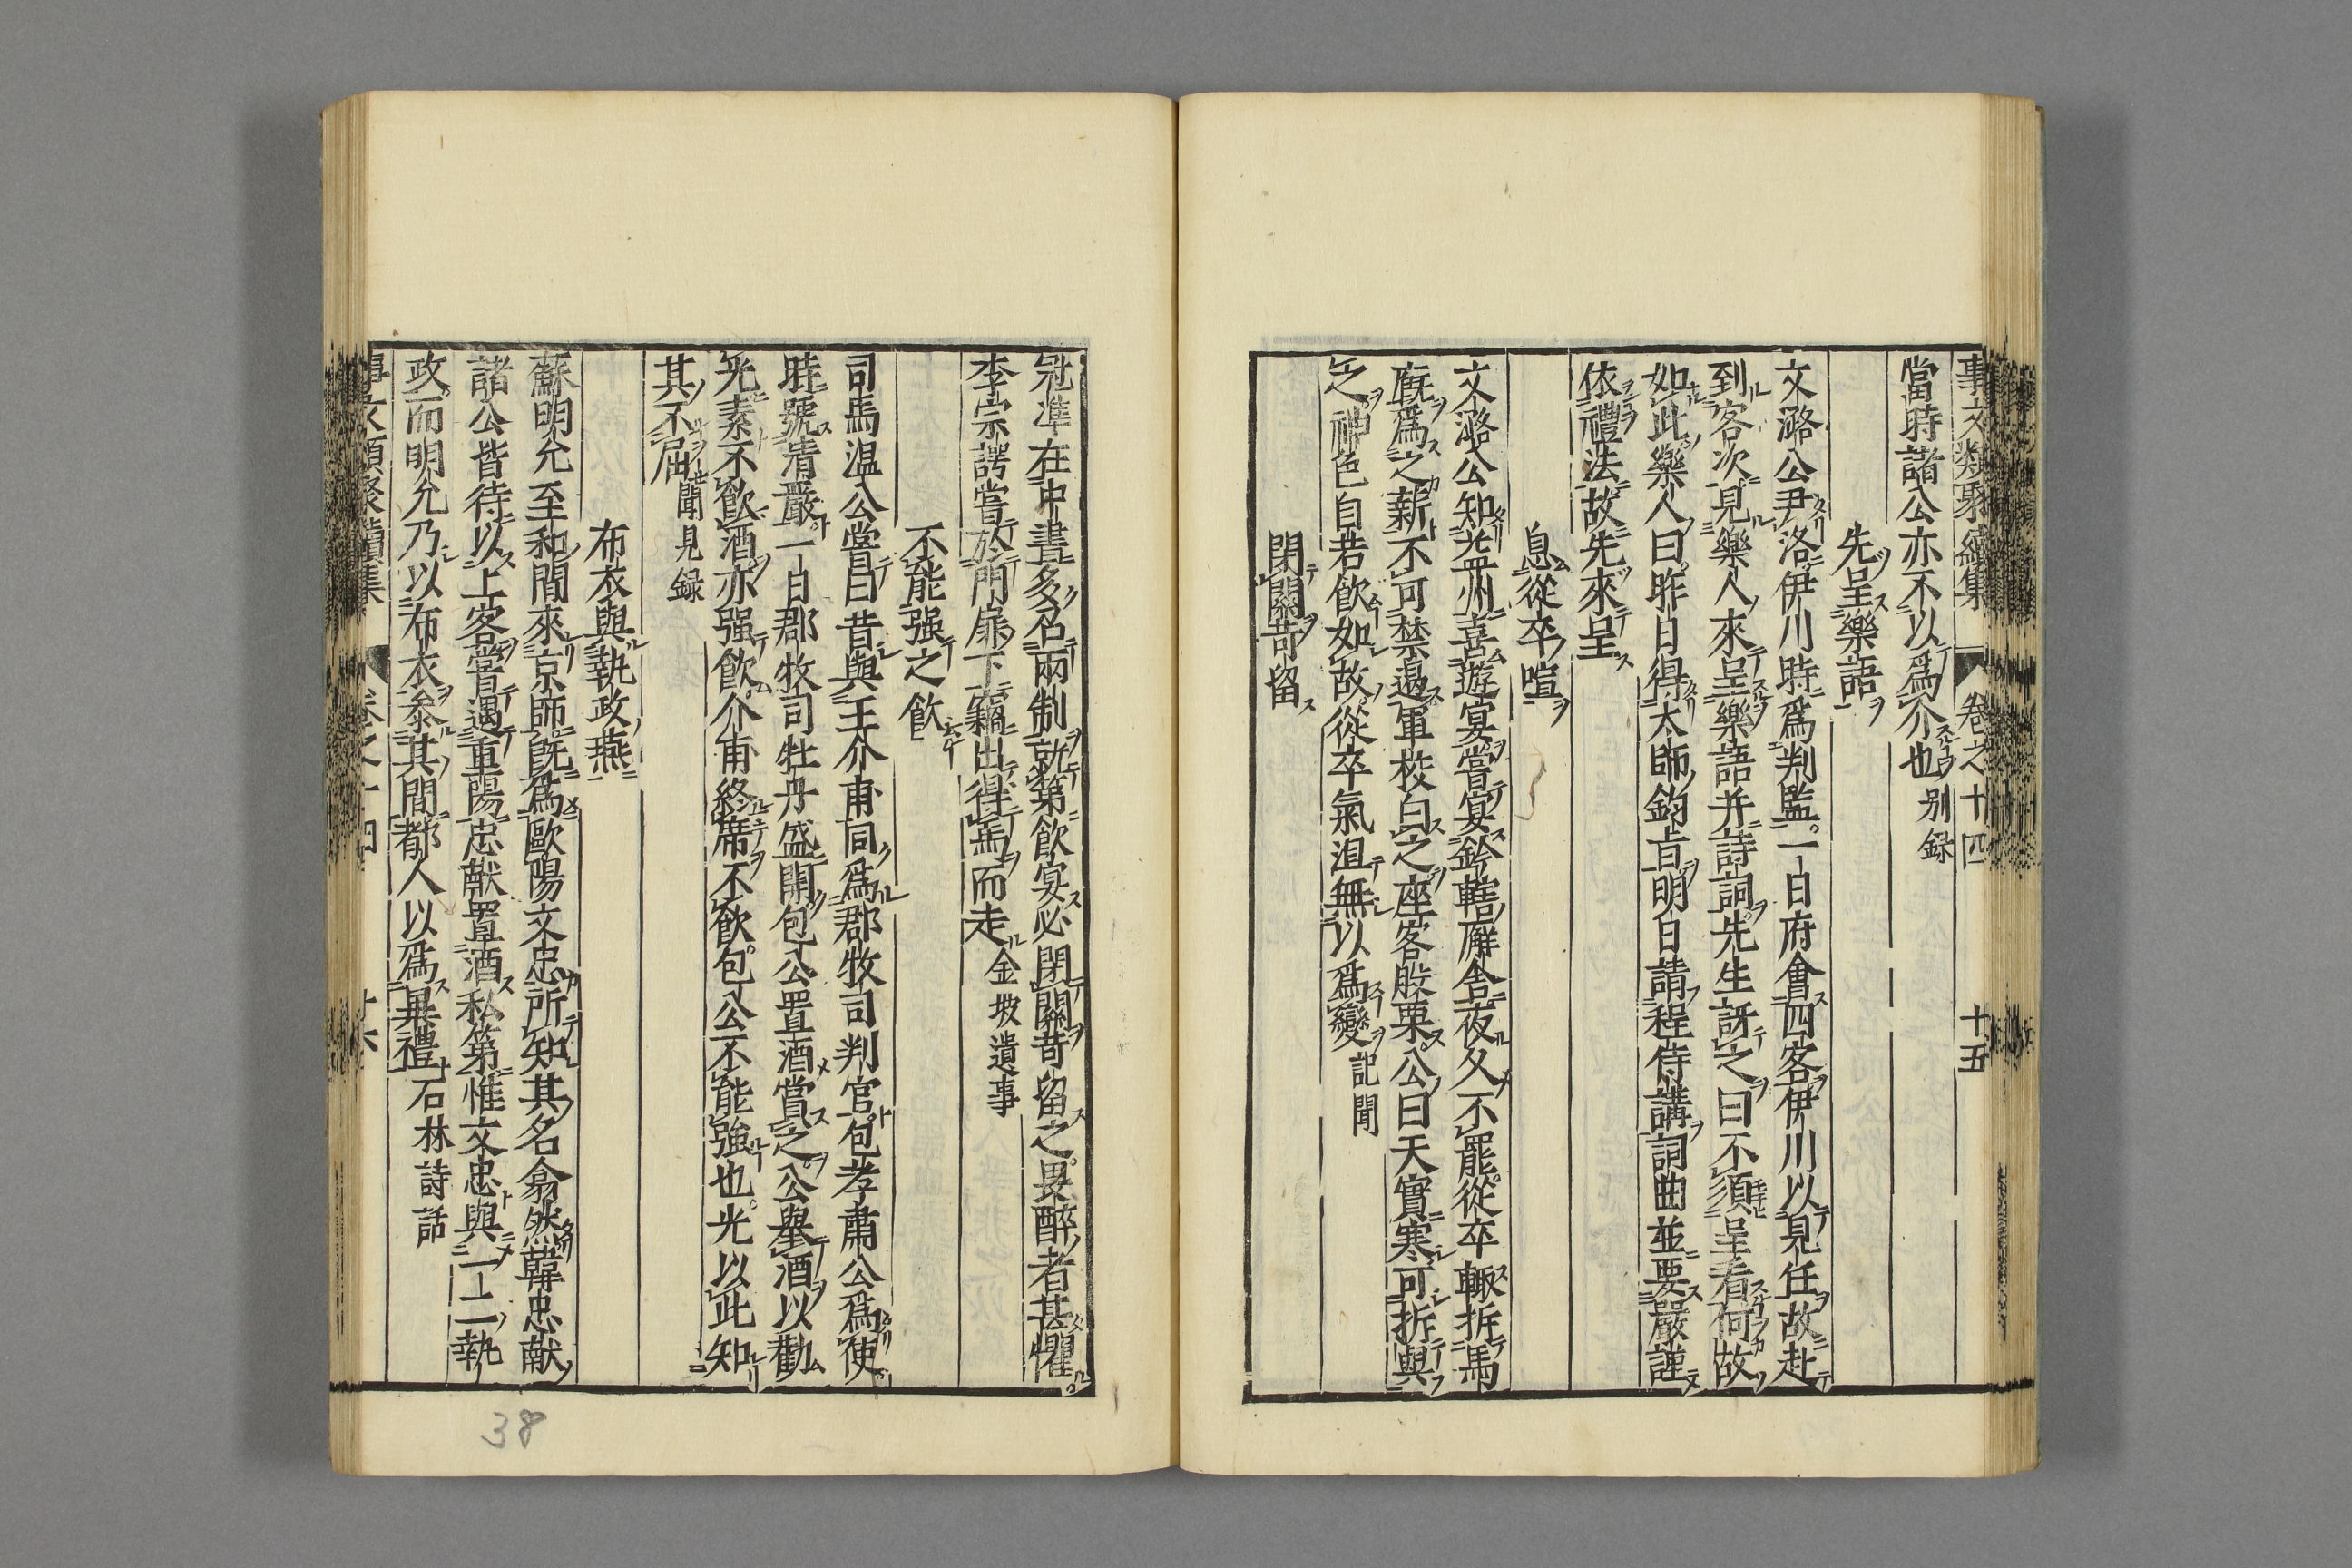 事文類聚續集 卷之十四 十五
當時諸公亦不以爲介也 別録
先呈樂語
文潞公尹洛伊川時爲判監一日府會四客伊川以見任故赴
到客次見樂人來呈樂語并詩詞先生訝之曰不須呈看何故
如此樂人曰昨日得太師鈞旨明日請程侍講詞曲並要嚴謹
依禮法故先來呈
息從卒喧
文潞公知益州喜遊宴嘗宴鈐轄廨舍夜久不罷從卒輙拆馬
廐爲之薪不可禁遏軍校白之座客股栗公曰天實寒可拆與
之神色自若飲如故從卒氣沮無以爲變 記聞
閉關苛留
冦準在中書多名兩制就第飲宴必閉關苛留之畏醉者甚懼
李宗諤嘗於門扉下竊出得馬而走 金坡遺事
不能强之飲
司馬温公嘗曰昔與王介甫同爲郡牧司判官包孝肅公爲使
時號清嚴一日郡牧司牡丹盛開包公置酒賞之公舉酒以勸
光素不飲酒亦强飲介甫終席不飲包公不能強也光以此知
其不屈 聞見録
布衣與執政燕
蘇明允至和間來京師既爲歐陽文忠所知其名翕然韓忠献
諸公皆待以上客嘗遇重陽忠献置酒私第惟文忠與一二執
政而明允乃以布衣參其間都人以爲異禮 石林詩話
事文類聚續集 卷之十四
38